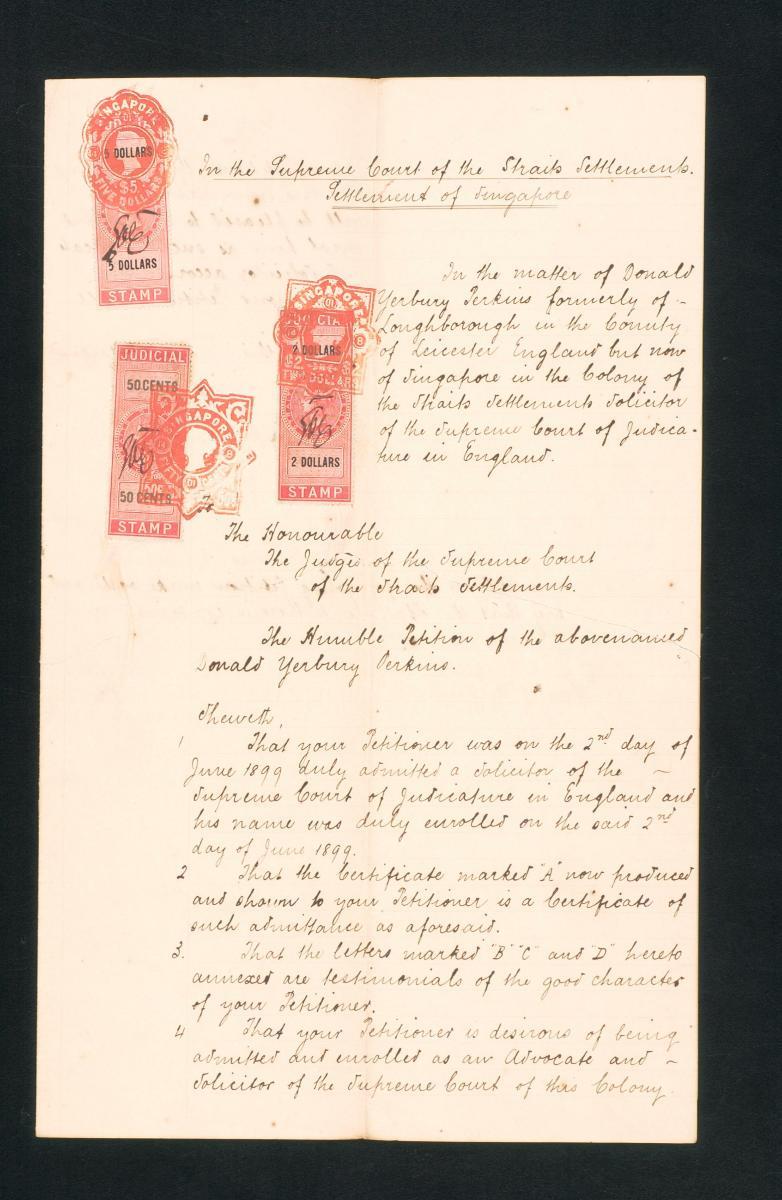 SINGAPORE
5 DOLLARS
$5
FIVE DOLLARS
5 DOLLARS
STAMP
In the Supreme Court of the Straits Settlements.
Settlement of Singapore
In the matter of Donald
Yerbury Perkins formerly of -
Loughborough in the County
of Leicester England but now
of Singapore in the Colony of
the Straits Settlements Solicitor
of the Supreme Court of Judica-
ture in England.
SINGAPORE
JUDICIAL
2 DOLLARS
TWO DOLLARS
2 DOLLARS
STAMP
JUDICIAL
50 CENTS
SINGAPORE
50 CENTS
STAMP
To
The Honourable
The Judges of the Supreme Court
of the Straits Settlements.
The Humble Petition of the abovenamed
Donald Yerbury Perkins.
Sheweth,
1 That your Petitioner was on the 2nd day of
June 1899 duly admitted a Solicitor of the -
Supreme Court of Judicature in England and
his name was duly enrolled on the said 2nd
day of June 1899.
2 That the Certificate marked "A" now produced
and shown to your Petitioner is a Certificate of
such admittance as aforesaid.
3. That the letters marked "B" "C" and "D" hereto
annexed are testimonials of the good character
of your Petitioner.
4 That your Petitioner is desirous of being
admitted and enrolled as an Advocate and -
Solicitor of the Supreme Court of this Colony.